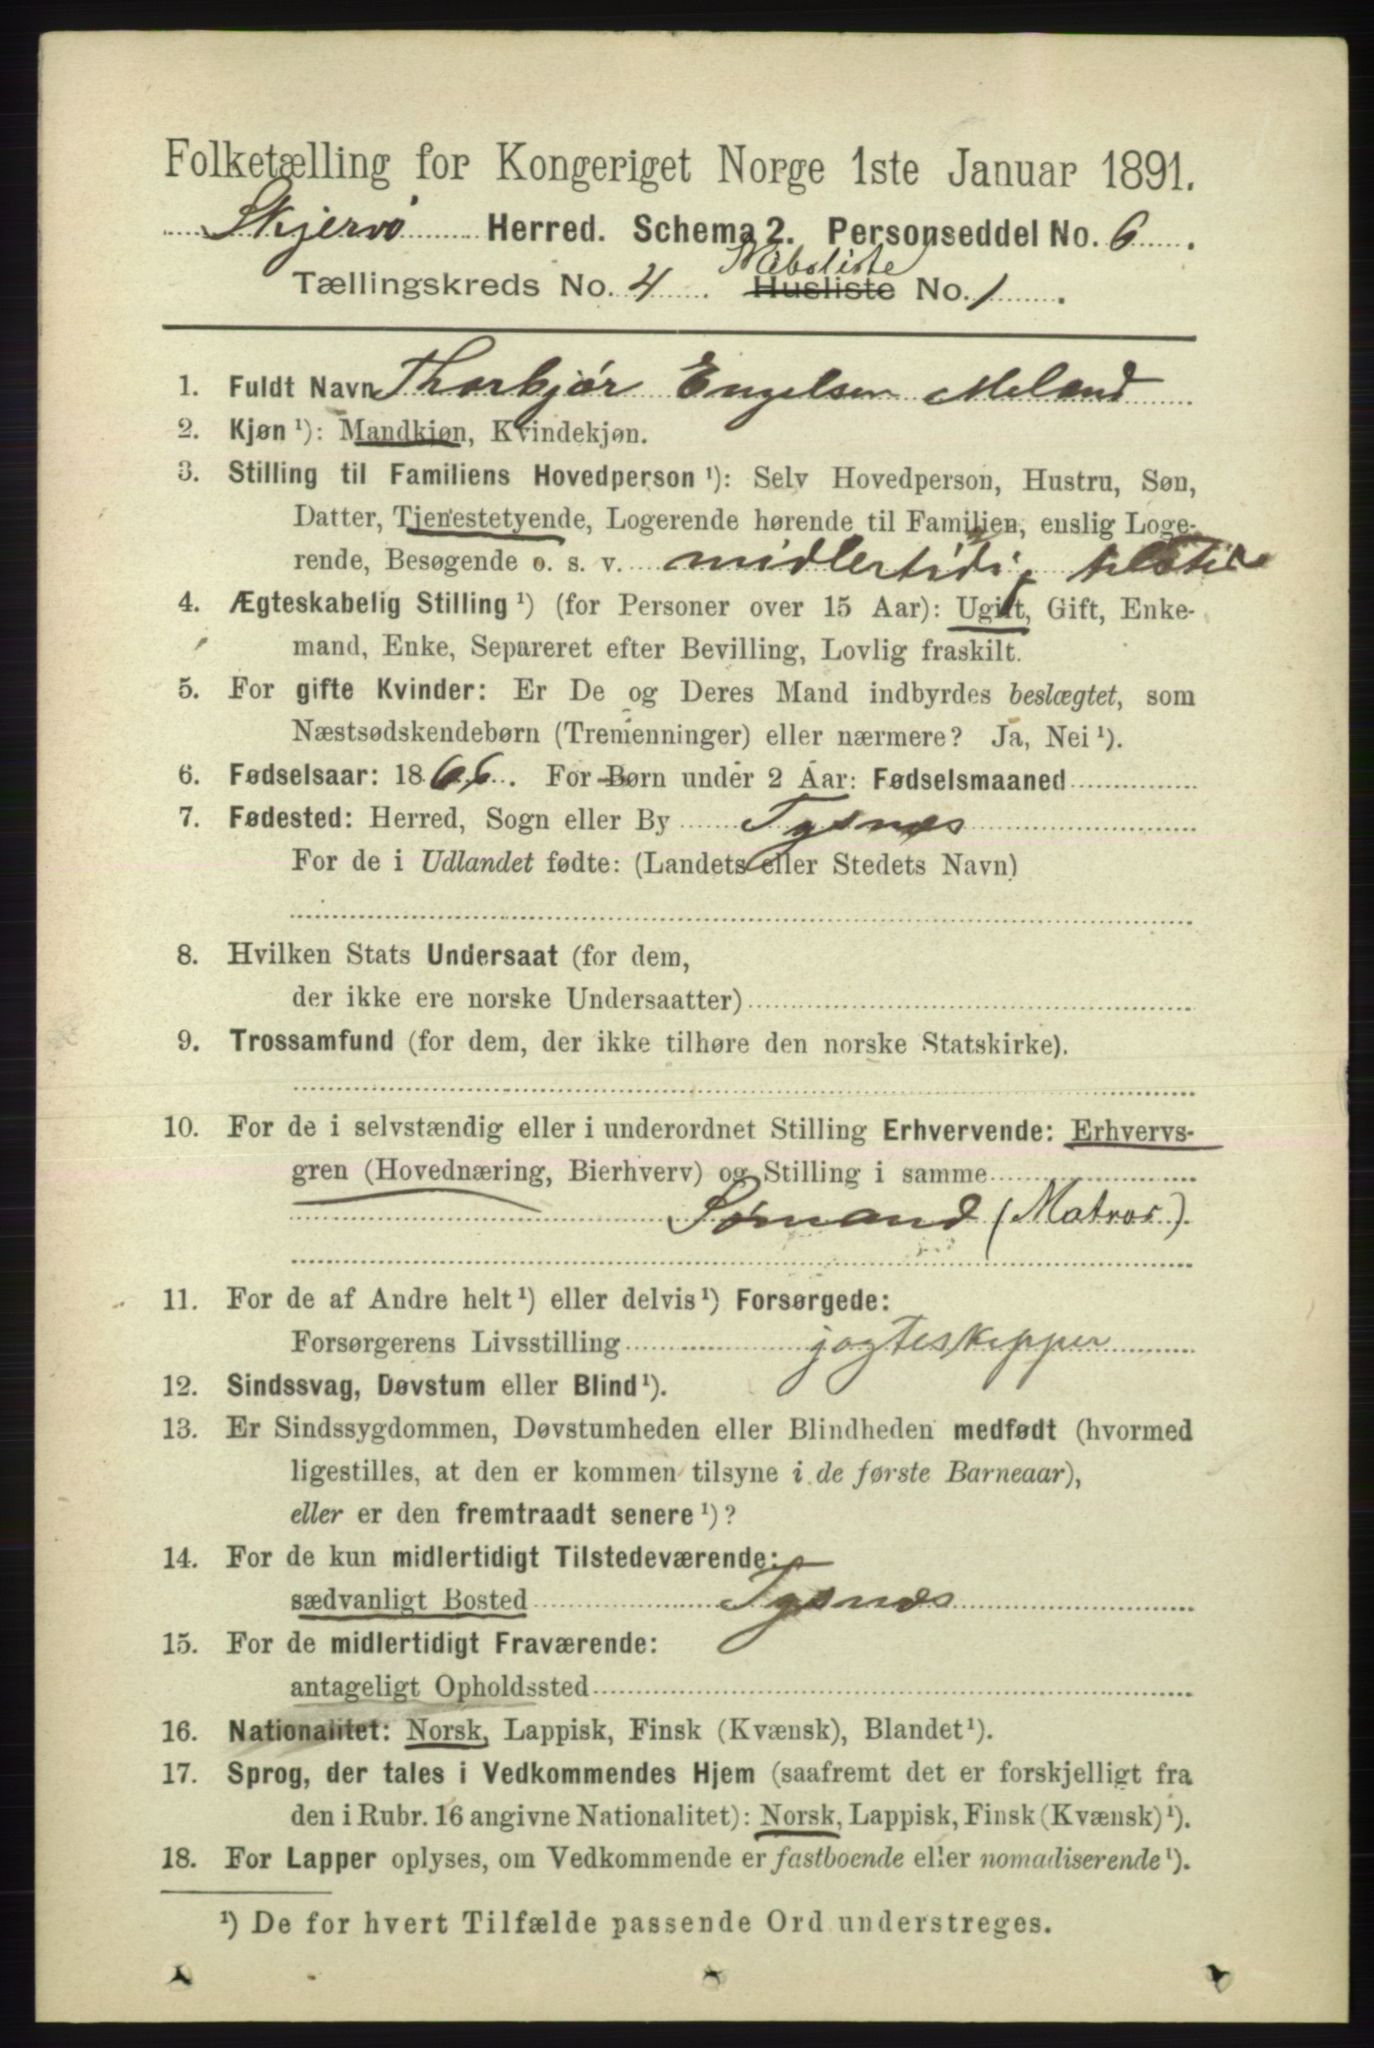 Folketælling for Kongeriget Norge 1ste Januar 1891.
Skjervø Herred. Schema 2. Personseddel No. 6.
Tællingskreds No. 4 Husliste No. 1.
1. Fuldt Navn Thorbjør Engelsen Meland
2. Kjøn ¹): Mandkjøn, Kvindekjøn.
3. Stilling til Familiens Hovedperson ¹): Selv Hovedperson, Hustru, Søn,
Datter, Tjenestetyende, Logerende hørende til Familien, enslig Loge-
rende, Besøgende o. s. v. midlertidig tilsted
4. Ægteskabelig Stilling ¹) (for Personer over 15 Aar): Ugift, Gift, Enke-
mand, Enke, Separeret efter Bevilling, Lovlig fraskilt.
5. For gifte Kvinder: Er De og Deres Mand indbyrdes beslægtet, som
Næstsødskendebørn (Tremenninger) eller nærmere? Ja, Nei ¹).
6. Fødselsaar: 1866. For Børn under 2 Aar: Fødselsmaaned
7. Fødested: Herred, Sogn eller By Tysnæs
For de i Udlandet fødte: (Landets eller Stedets Navn)
8. Hvilken Stats Undersaat (for dem,
der ikke ere norske Undersaatter)
9. Trossamfund (for dem, der ikke tilhøre den norske Statskirke).
10. For de i selvstændig eller i underordnet Stilling Erhvervende: Erhvervs-
gren (Hovednæring, Bierhverv) og Stilling i samme
Sømand (Matros).
11. For de af Andre helt ¹) eller delvis ¹) Forsørgede:
Forsørgerens Livsstilling jagteskipper
12. Sindssvag, Døvstum eller Blind ¹).
13. Er Sindssygdommen, Døvstumheden eller Blindheden medfødt (hvormed
ligestilles, at den er kommen tilsyne i de første Barneaar),
eller er den fremtraadt senere ¹)?
14. For de kun midlertidigt Tilstedeværende:
sædvanligt Bosted Tysnæs
15. For de midlertidigt Fraværende:
antageligt Opholdssted
16. Nationalitet: Norsk, Lappisk, Finsk (Kvænsk), Blandet ¹).
17. Sprog, der tales i Vedkommendes Hjem (saafremt det er forskjelligt fra
den i Rubr. 16 angivne Nationalitet): Norsk, Lappisk, Finsk (Kvænsk) ¹).
18. For Lapper oplyses, om Vedkommende er fastboende eller nomadiserende ¹).
¹) De for hvert Tilfælde passende Ord understreges.